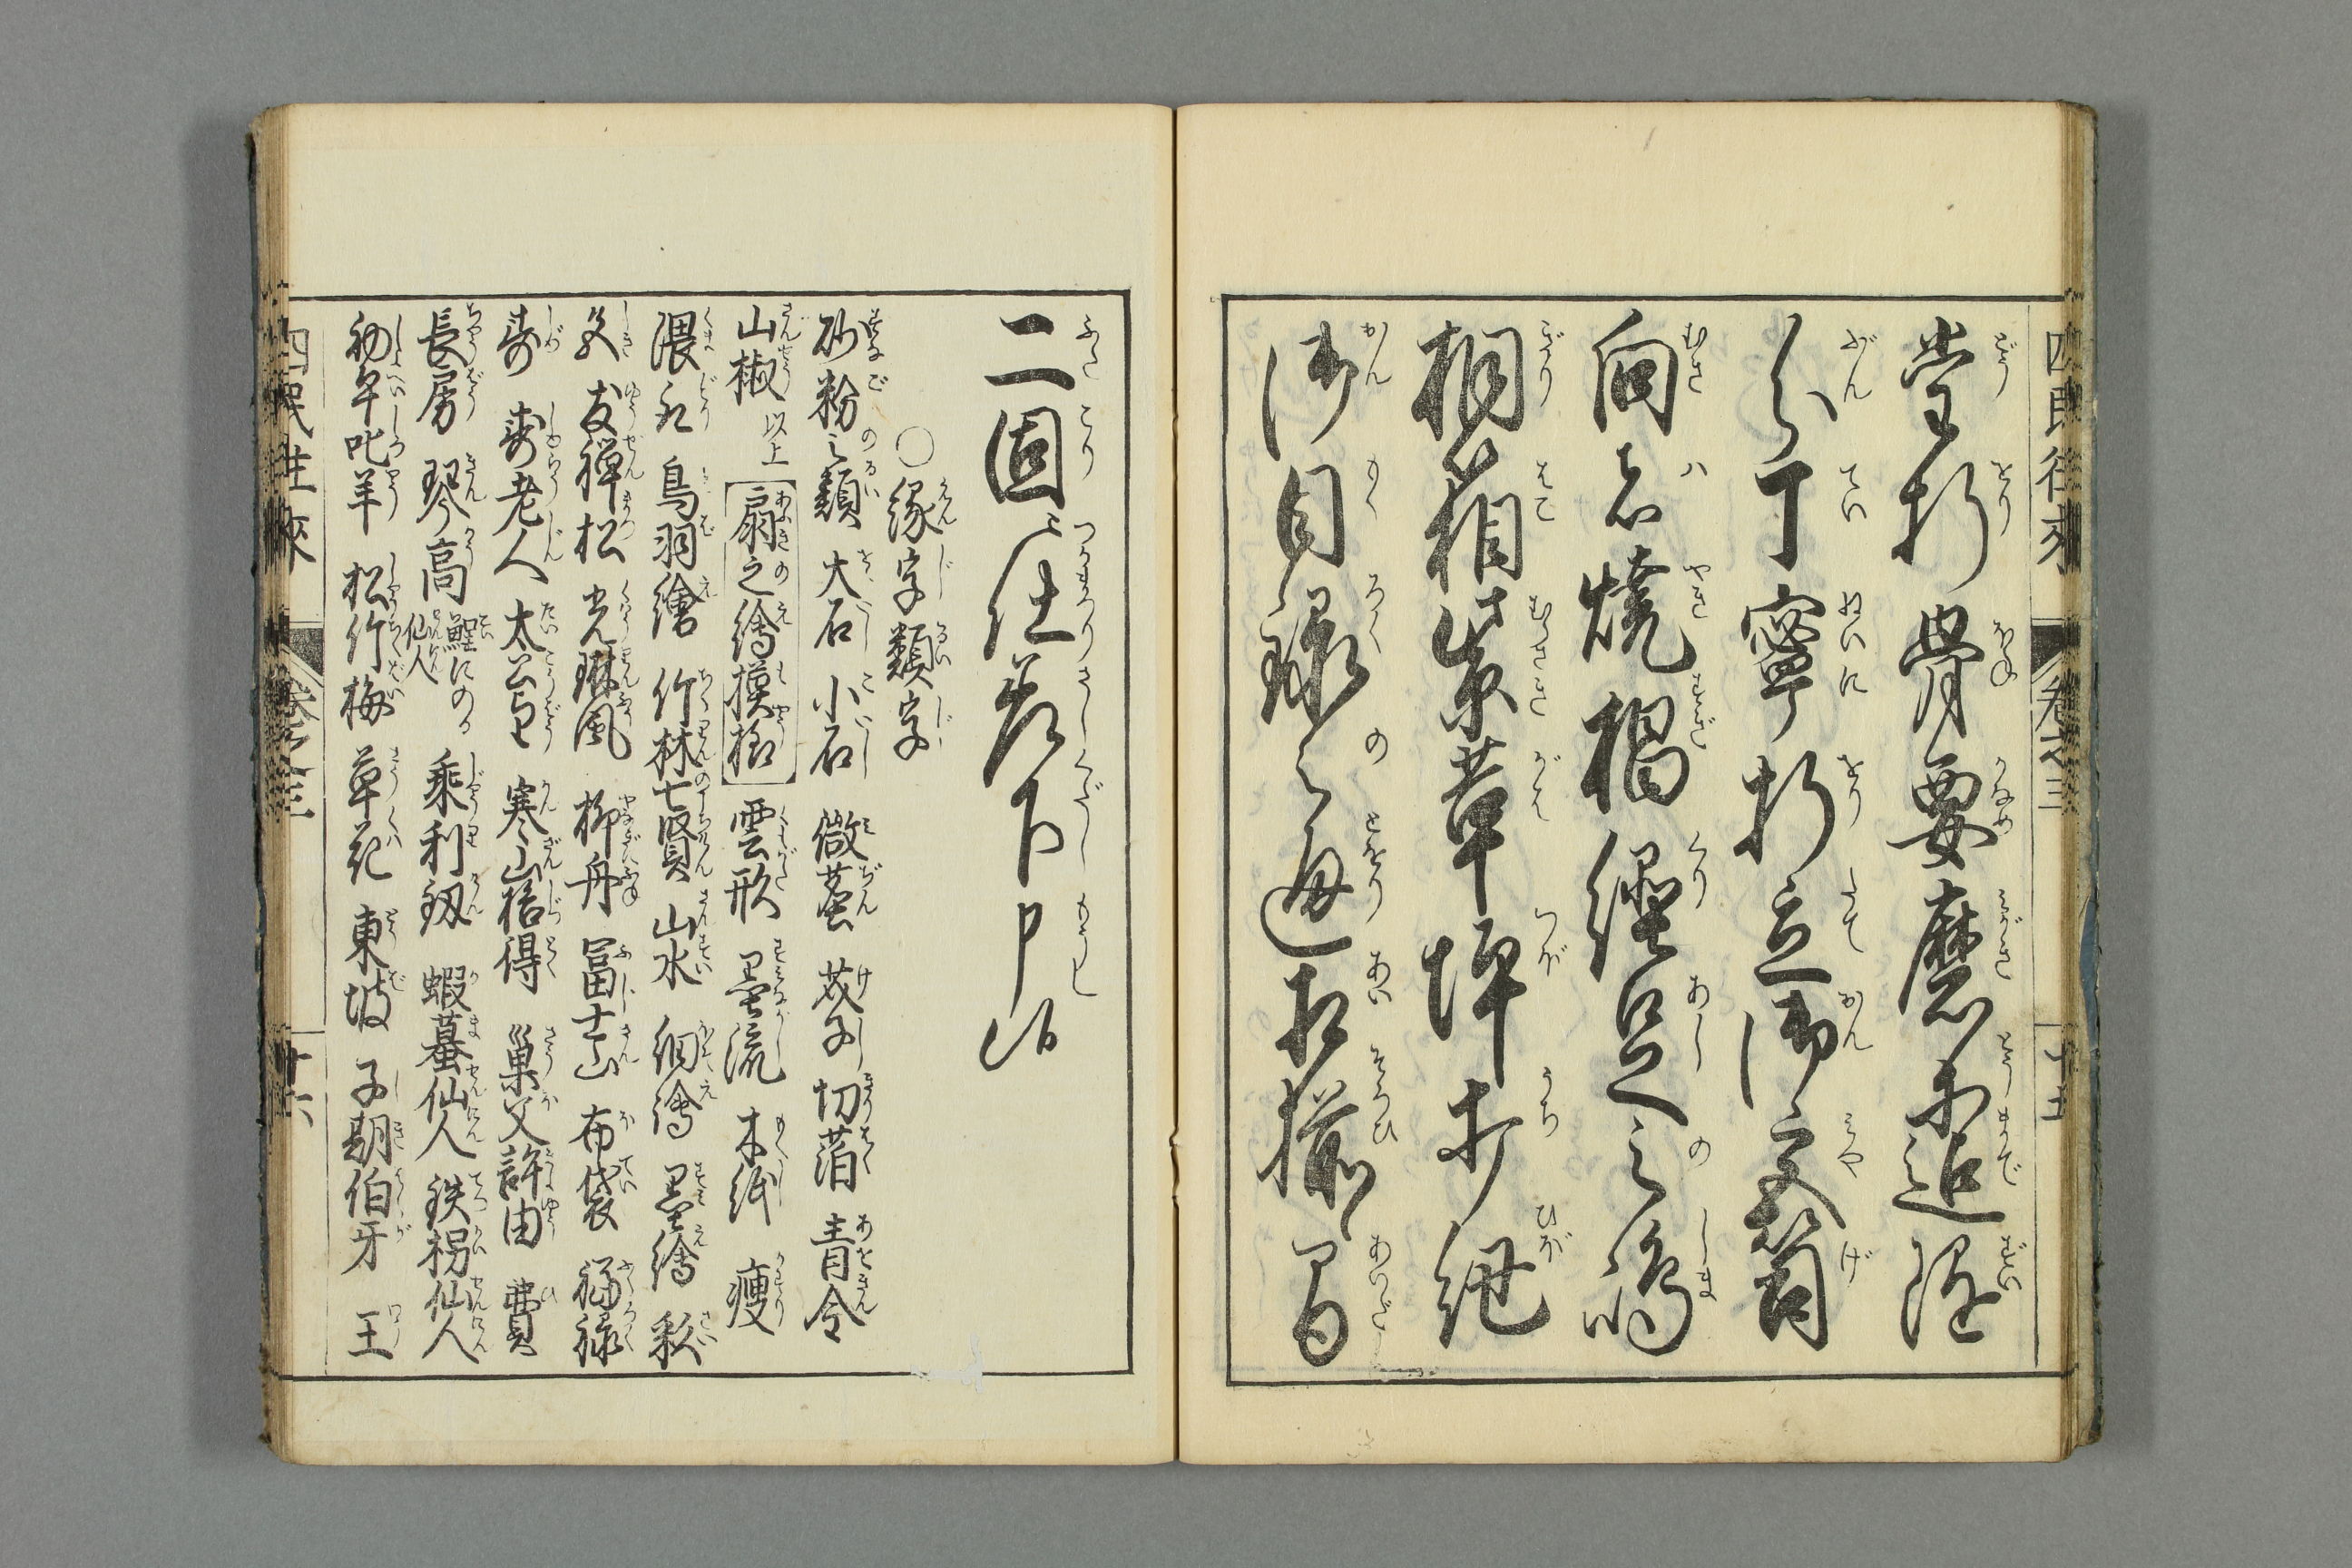 四民往来　巻之三　十五
堂折骨要磨等迄随
分丁寧折立御文筥
向者焼楊縁足之嶋
桐箱柴葦坪打紐
御目録之通相揃候間
二固仕差下申候
〇縁字類字
砂粉之類　大石　小石　微塵　芥子　切箔　青金
山椒以上　扇之繪摸様　雲形　墨流　木紙　痩
隈取　鳥羽繪　竹林七賢　山水　細繪　墨繪　彩
色　友禅松　光琳風　柳舟　冨士山　布袋　福禄
寿　寿老人　太公望　寒山拾得　巣父許由　費
長房　琴高鯉にのる仙人　乗利釼　蝦蟇仙人　鉄拐仙人
初平叱羊　松竹梅　草花　東坡　子期伯牙　王
四民往来　巻之三　十六